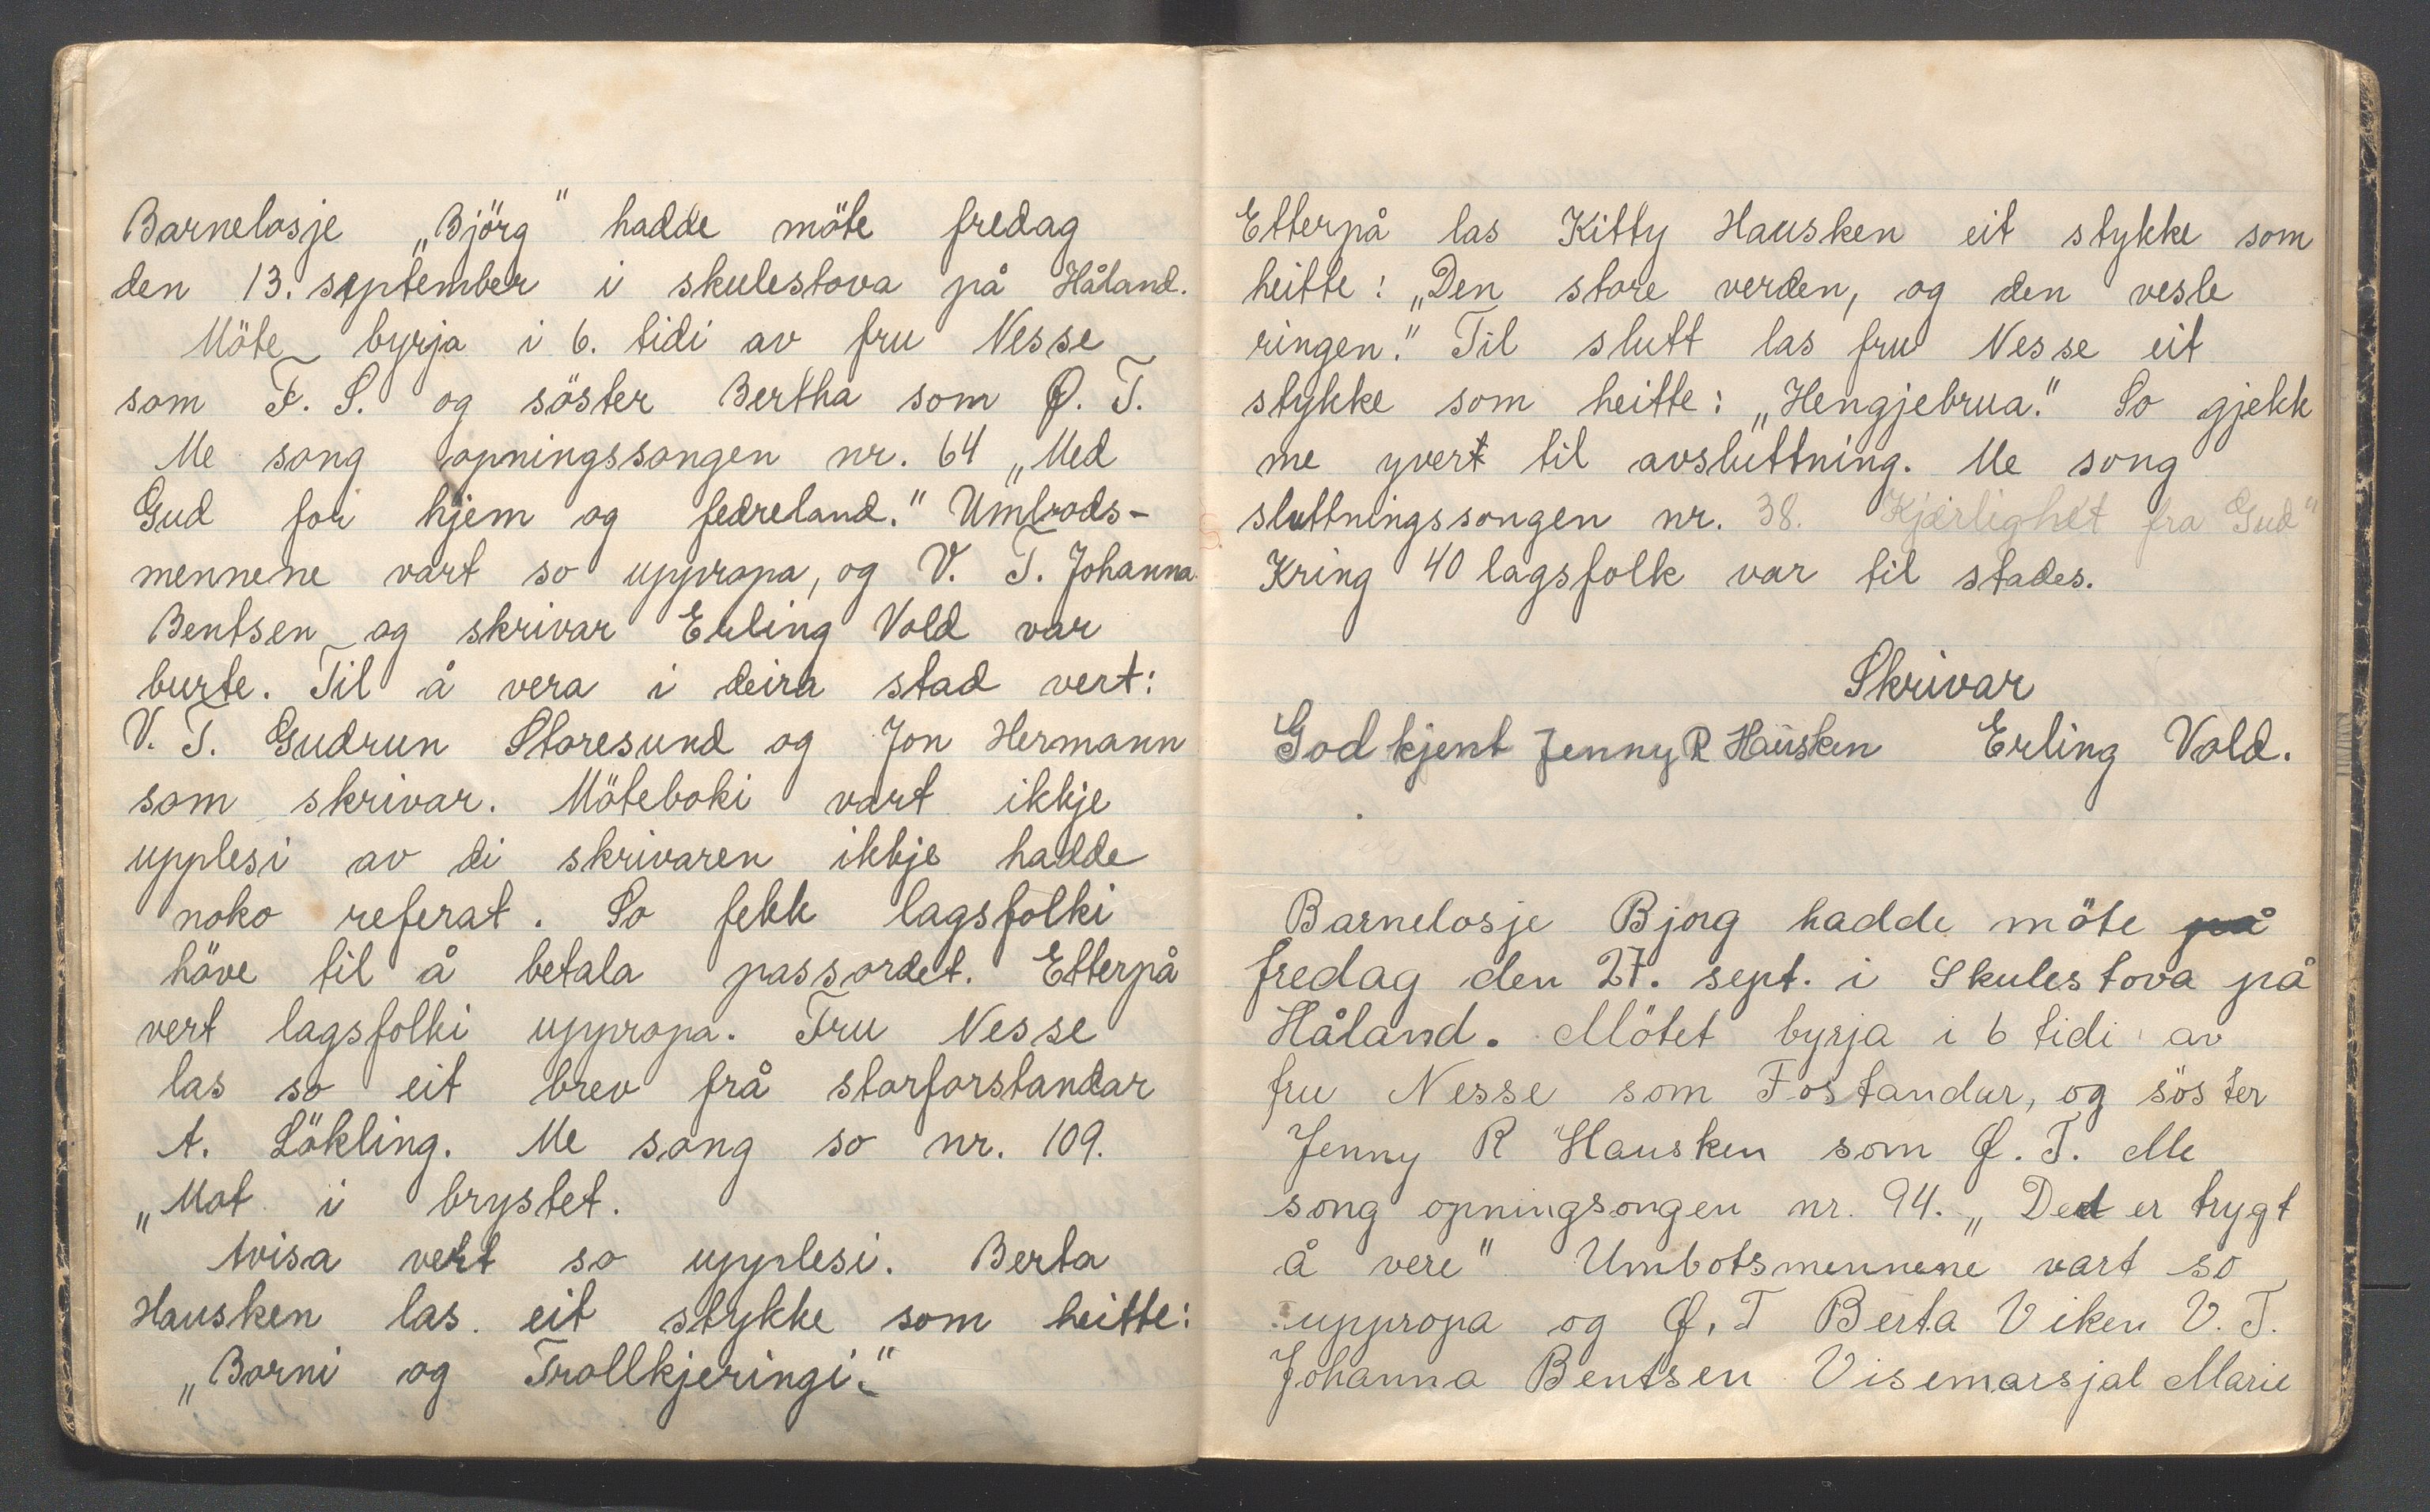 Barnelosje „Björg" hadde möte fredag
den 13. september i skulestova på Håland.
Möte byrja i 6. tidi av fru Nesse
som F. S. og söster Bertha som Ø. T.
Me song opningssongen nr. 64 „Med
Gud for hjem og fedreland." Umbods-
mennene vart so uppropa, og V. T. Johanna
Bentsen og skrivar Erling Vold var
burte. Til å vera i deira stad vert:
V. T. Gudrun Storesund og Jon Hermann
som skrivar. Möteboki vart ikkje
upplesi av di skrivaren ikkje hadde
noko referat. So fekk lagsfolki
höve til å betala passordet. Etterpå
vert lagsfolki uppropa. Fru Nesse
las so eit brev frå storforstandar
A. Lökling. Me song so nr. 109.
„Mot i brystet.
Avisa vert so upplesi. Berta
Hausken las eit stykke som heitte:
„Borni og Trollkjeringi."
Etterpå las Kitty Hausken eit stykke som
heitte: „Den store verden, og den vesle
ringen." Til slutt las fru Nesse eit
stykke som heitte: „Hengjebrua." So gjekk
me yvert til avsluttning. Me song
sluttningssongen nr. 38. Kjærlighet fra Gud"
Kring 40 lagsfolk var til stades.
Skrivar
Godkjent Jenny R Hausken Erling Vold.
Barnelosje Bjorg hadde möte på
fredag den 27. sept. i Skulestova på
Håland. Mötet byrja i 6 tidi av
fru Nesse som Fostandar, og söster
Jenny R Hausken som Ø. T. Me
song opningsongen nr. 94. „Det er trygt
å vere" Umbotsmennene vart so
uppropa og Ø. T Berta Viken V. T.
Johanna Bentsen Visemarsjal Marie